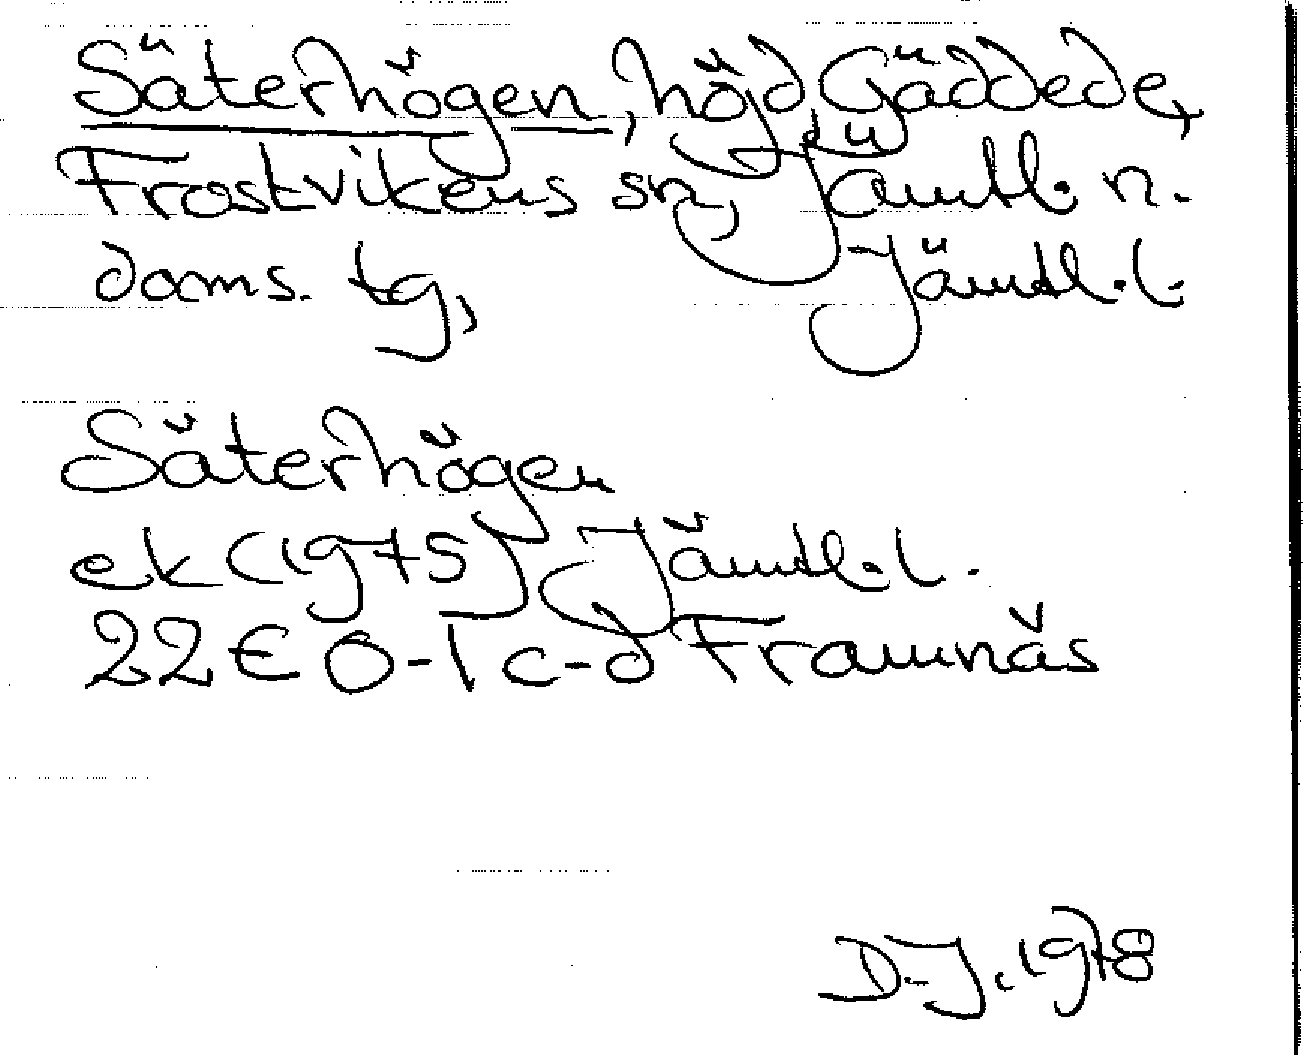 Säterhögen, höjd Gäddede,
Frostvikens sn, Jämtl. n.
doms. tg, Jämtl. l.
Säterhögen
ek (1975) Jämtl. l.
22E 0-1 c-d Framnäs
D.J. 1978